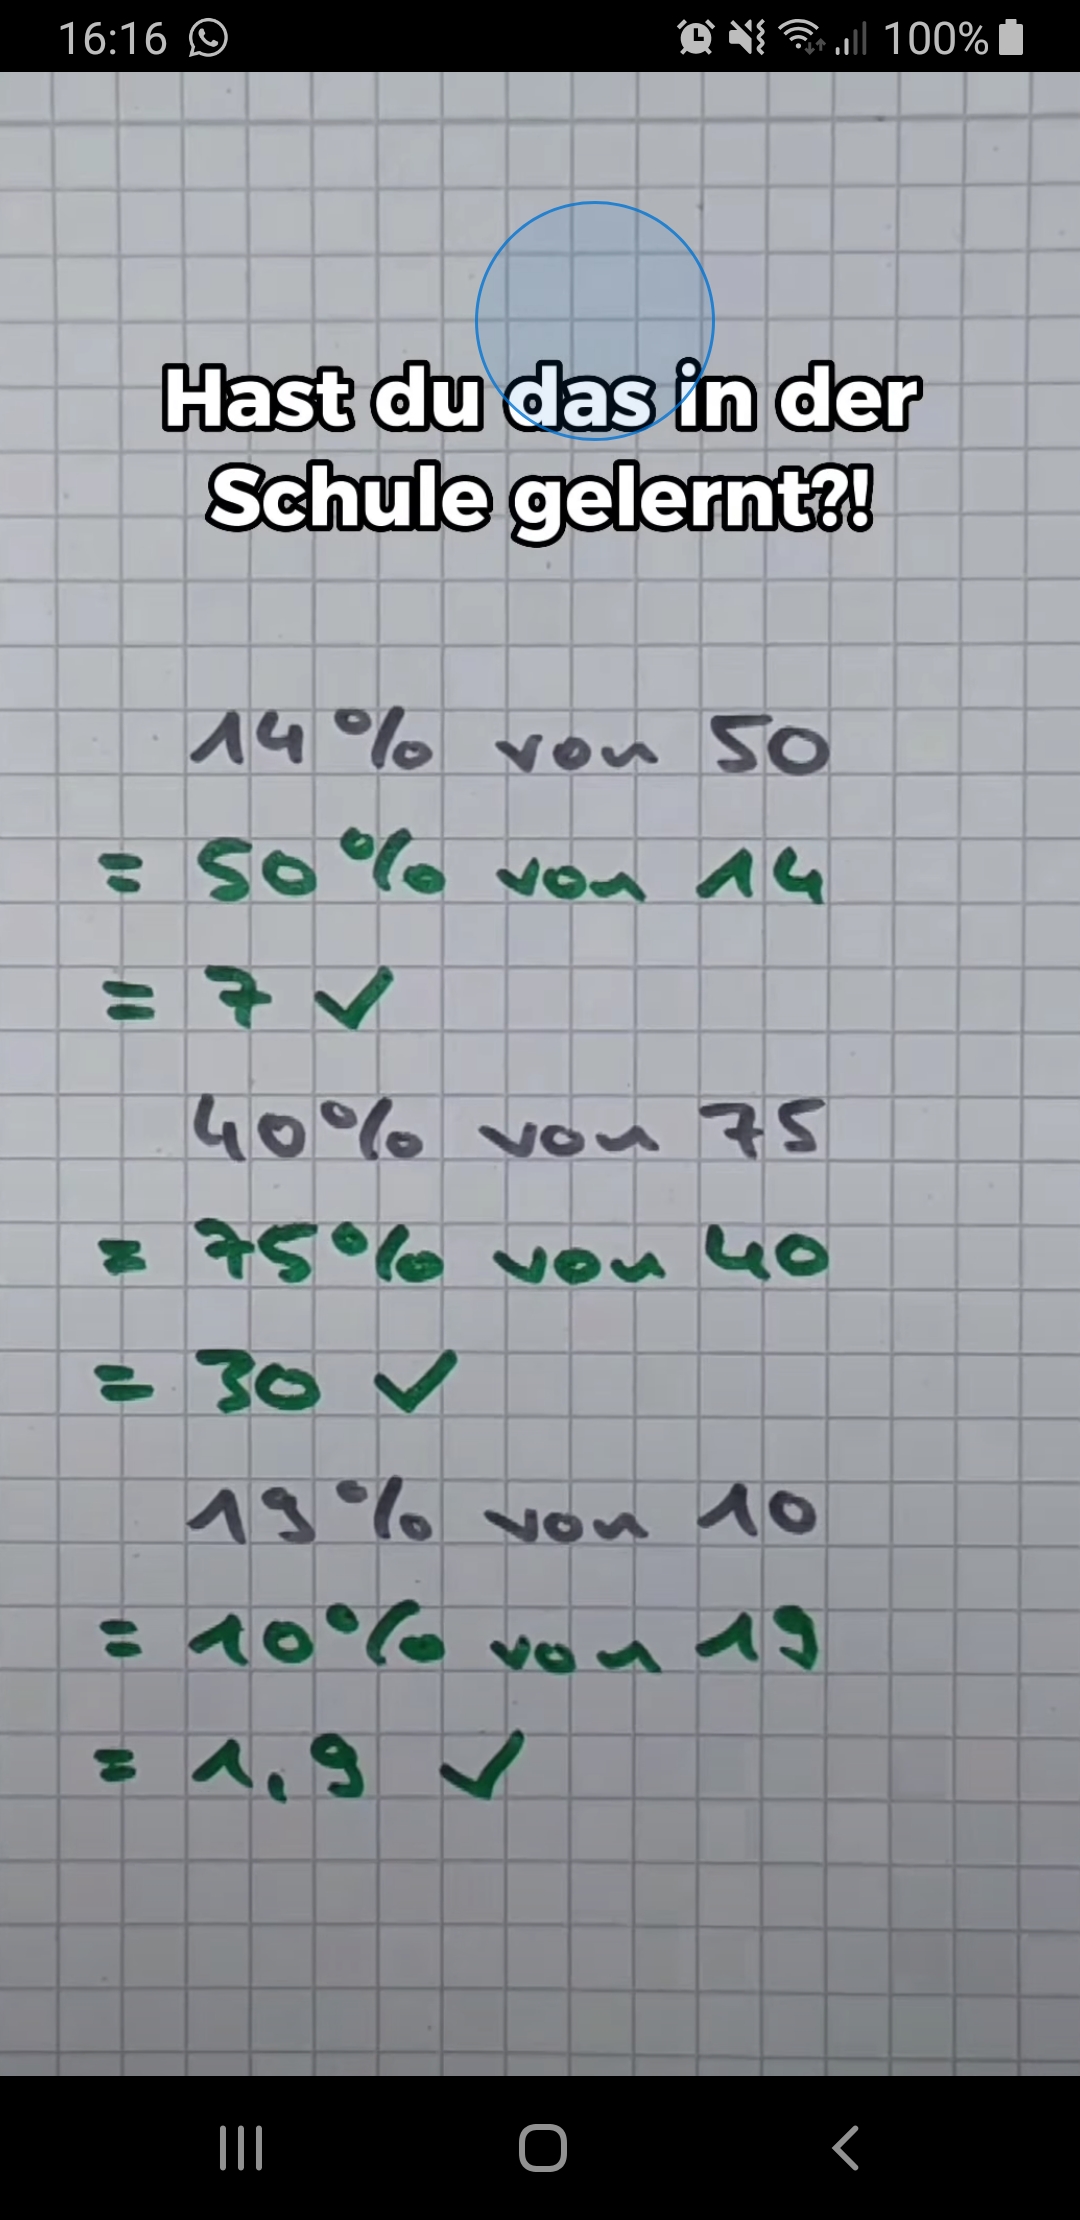 16:16 100%
Hast du das in der
Schule gelernt?!
14% von 50
= 50% von 14
= 7 ✓
40% von 75
= 75% von 40
= 30 ✓
19% von 10
= 10% von 19
= 1,9 ✓